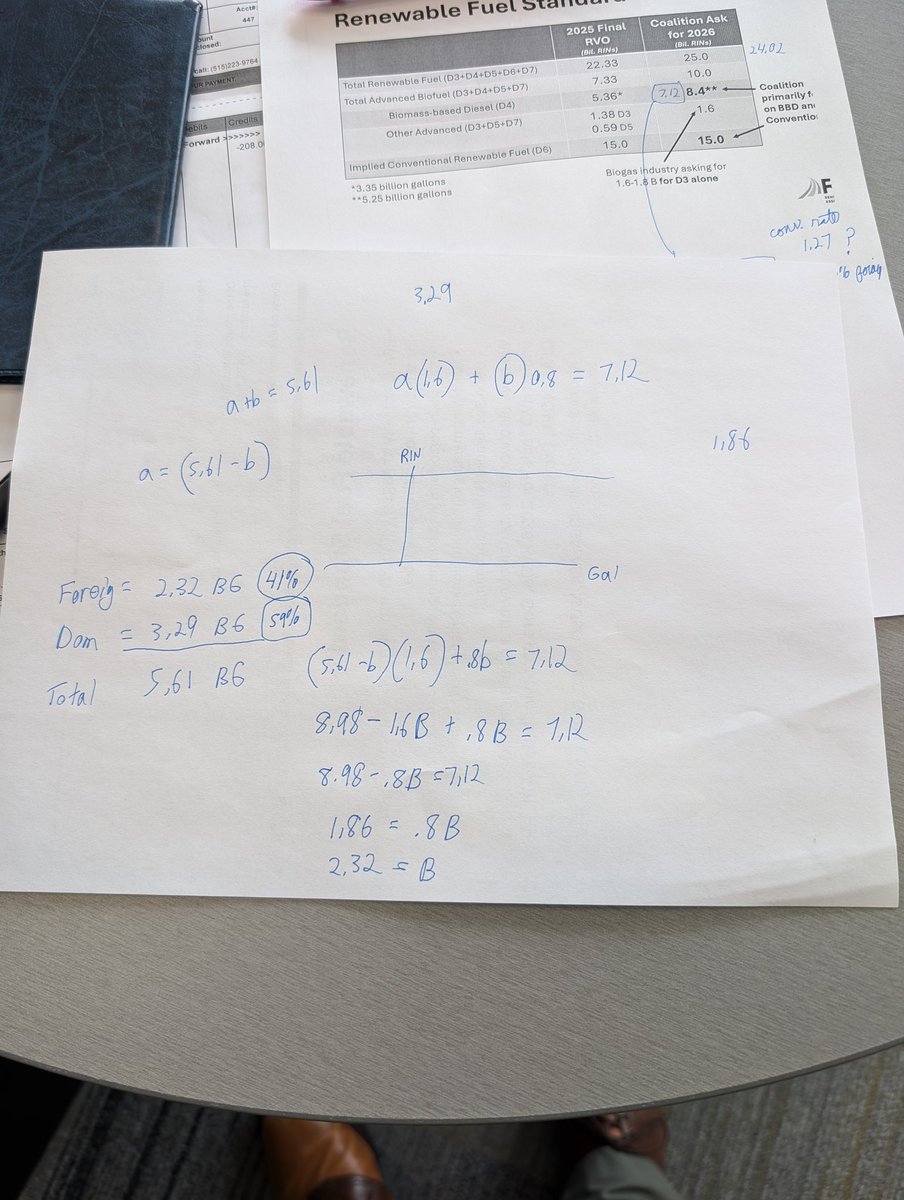 Acct#:
447
ount
closed:
call: (515)223-9764
UR PAYMENT.
ebits Credits
Forward >>>>>>>
-208.0
Renewable Fuel Standard
2025 Final
RVO
(Bil. RINs)
Coalition Ask
for 2026
(Bil. RINs)
24,02
Total Renewable Fuel (D3+D4+D5+D6+D7) 22.33 25.0
Total Advanced Biofuel (D3+D4+D5+D7) 7.33 10.0
Biomass-based Diesel (D4) 5.36* 7,12 8.4**
Other Advanced (D3+D5+D7) 1.38 D3 1.6
0.59 D5
Implied Conventional Renewable Fuel (D6) 15.0 15.0
Coalition
primarily f
on BBD and
Conventio
*3.35 billion gallons
**5.25 billion gallons
Biogas industry asking for
1.6-1.8 B for D3 alone
F
conv. rate
1,27 ?
3,29
a+b = 5,61
a(1,6) + (b)0,8 = 7,12
a = (5,61-b)
RIN
1,86
Gal
Foreig = 2,32 BG 41%
Dom = 3,29 BG 59%
Total 5,61 BG
(5,61-b)(1,6) + .8b = 7,12
8,98 - 1,6B + .8B = 7,12
8.98 - .8B = 7,12
1,86 = .8B
2,32 = B